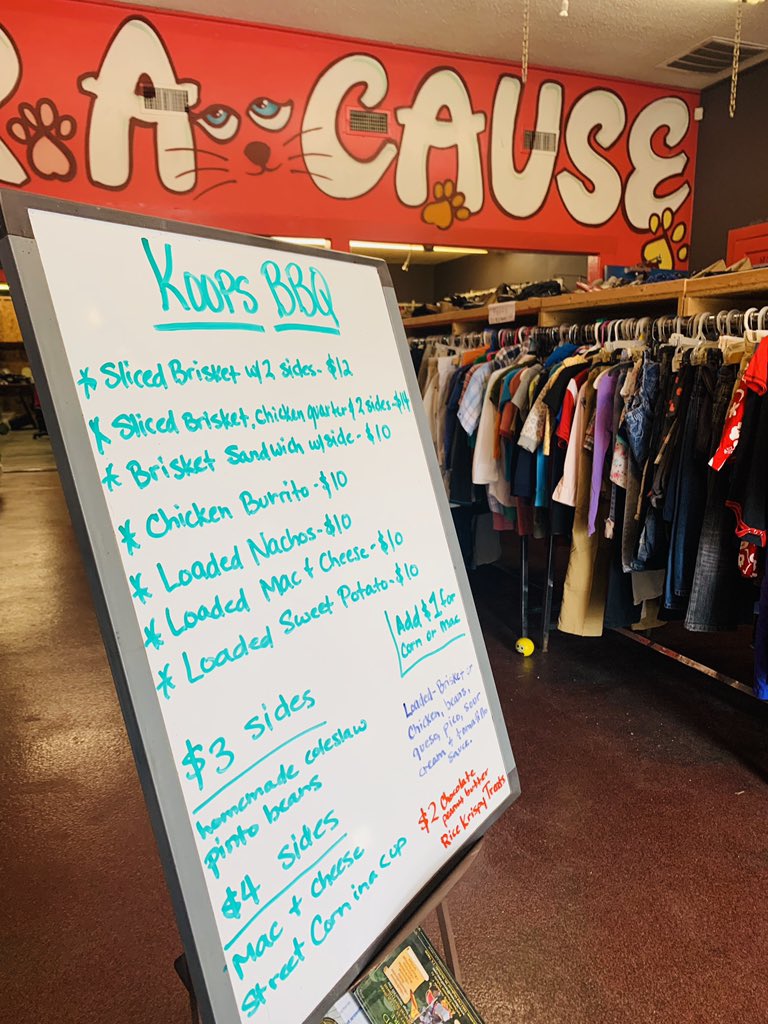 R A CAUSE
Koops BBQ
* Sliced Brisket w/2 sides - $12
* Sliced Brisket, Chicken quarter & 2 sides - $14
* Brisket Sandwich w/side - $10
* Chicken Burrito - $10
* Loaded Nachos - $10
* Loaded Mac + Cheese - $10
* Loaded Sweet Potato - $10
Add $1 for
Corn or Mac
$3 sides
homemade coleslaw
pinto beans
$4 sides
Mac + Cheese
Street Corn in a cup
Loaded - Brisket or
Chicken, beans,
queso, pico, sour
cream + tomatillo
sauce.
$2 Chocolate
peanut butter
Rice Krispy Treats